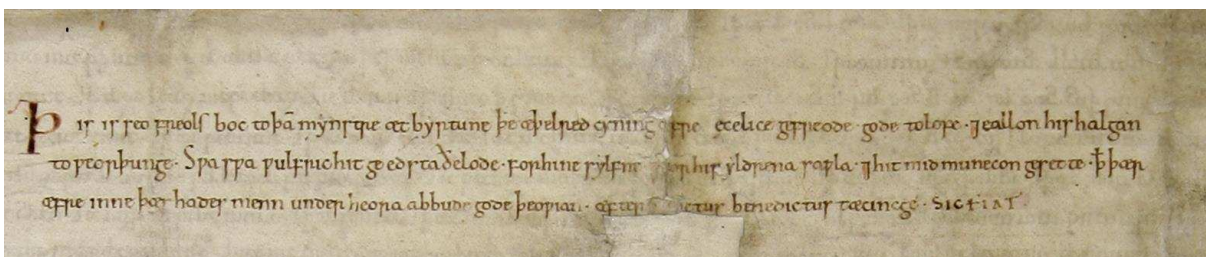 Þis is seo freols boc to þā mynstre æt byrtune þe æþelred cyning æfre ecelice gefreode gode to lofe · ⁊ eallon his halgan
to ƿeorþunge · Sƿa sƿa ƿulfric hit geedstaðelode · for hine sylfne his yldrena saƿla · ⁊ hit mid munecon gesette · ꝥ þær
æfre inne þæs hades menn under heora abbude gode þeoƿian · æfter benedictus tæcincge · SIC FIAT